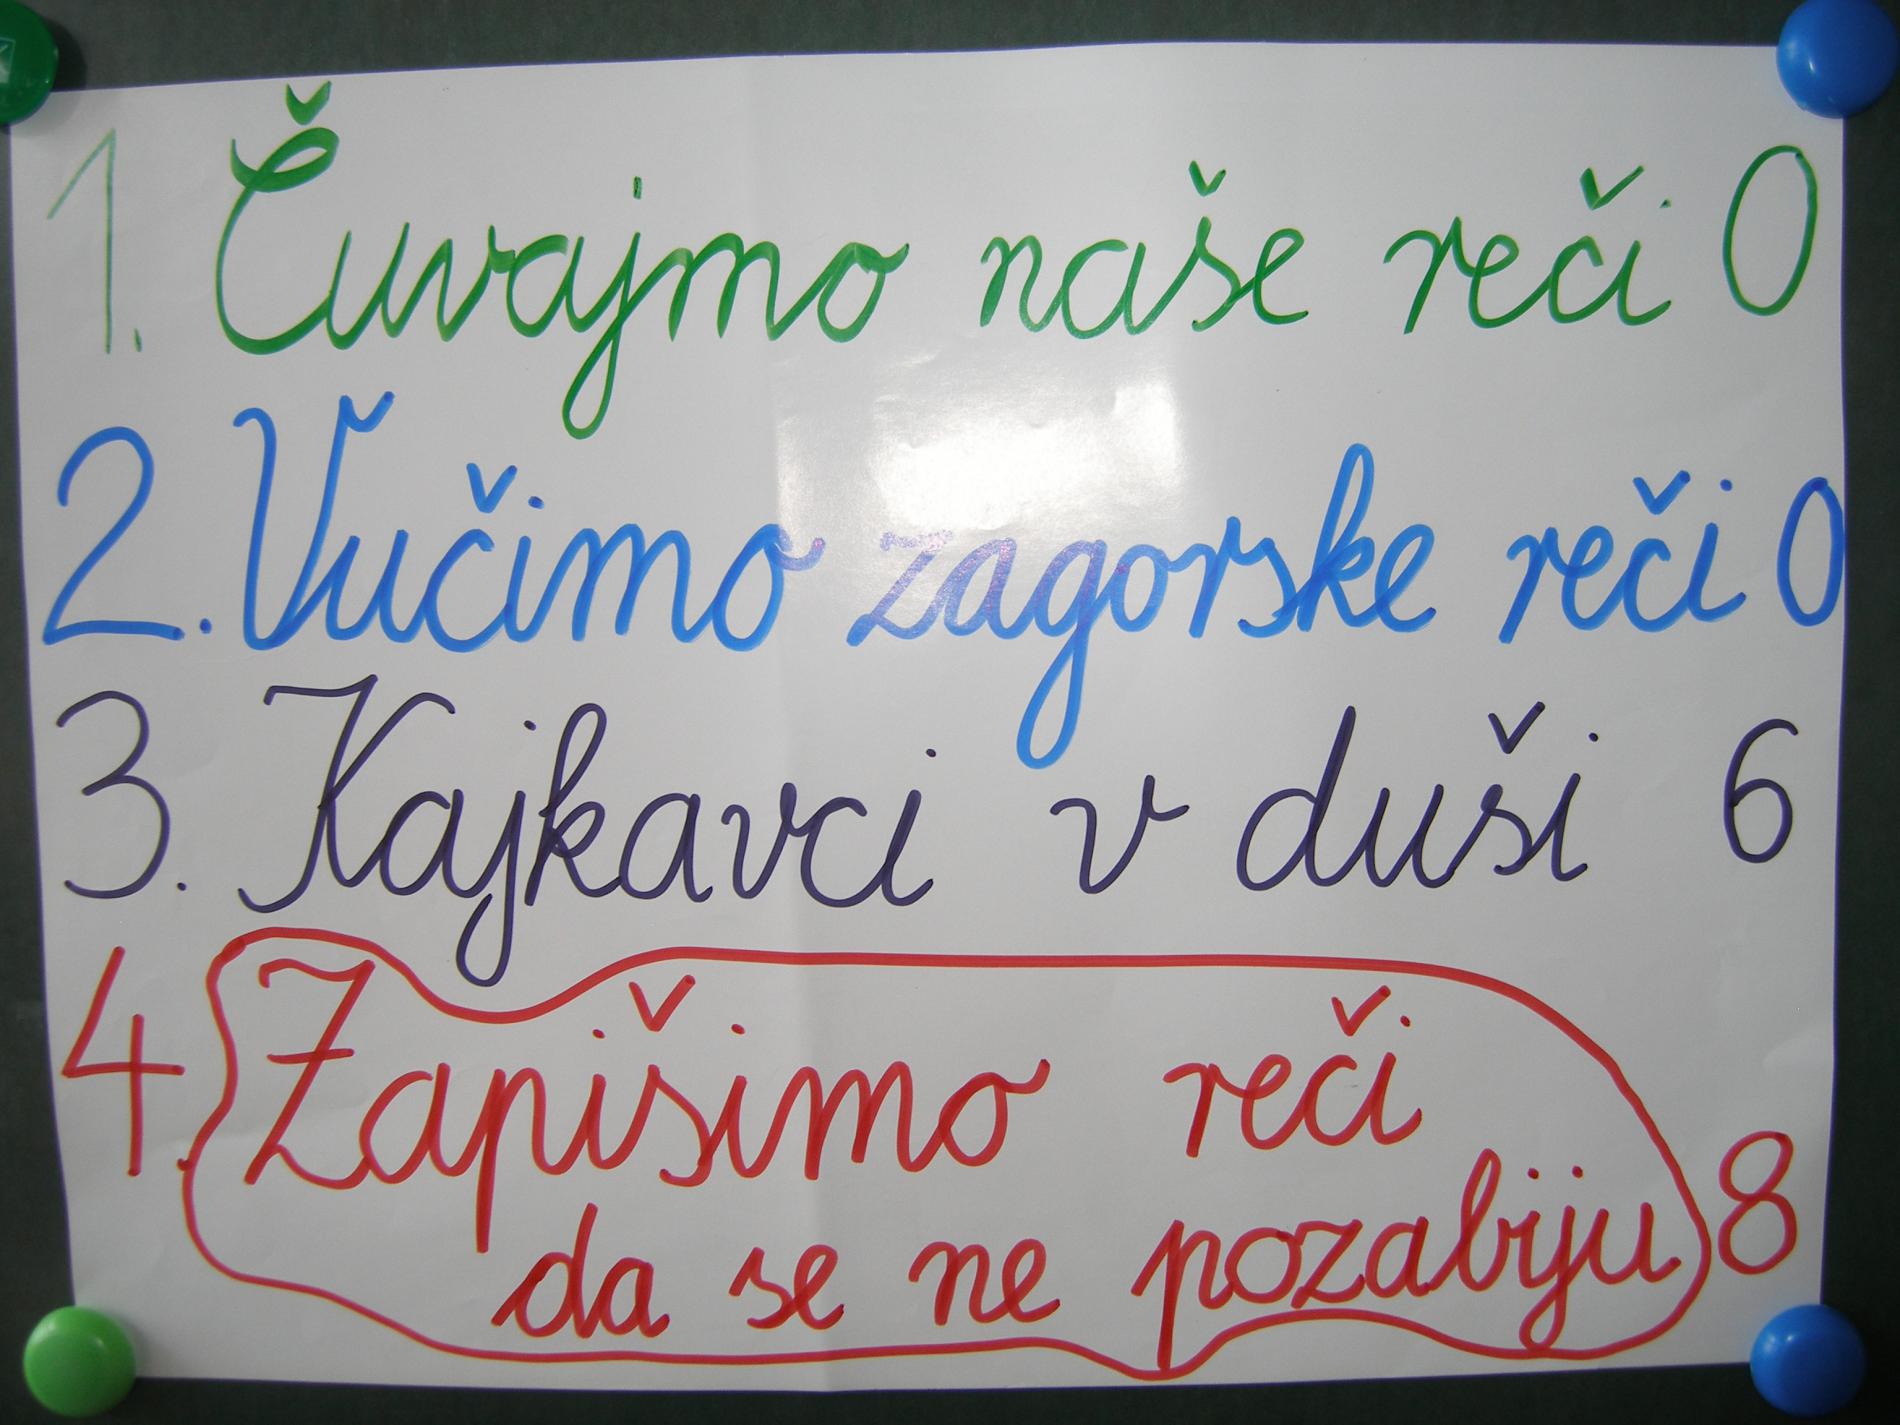 1. Čuvajmo naše reči 0
2. Vučimo zagorske reči 0
3. Kajkavci v duši 6
4. Zapišimo reči
da se ne pozabiju 8